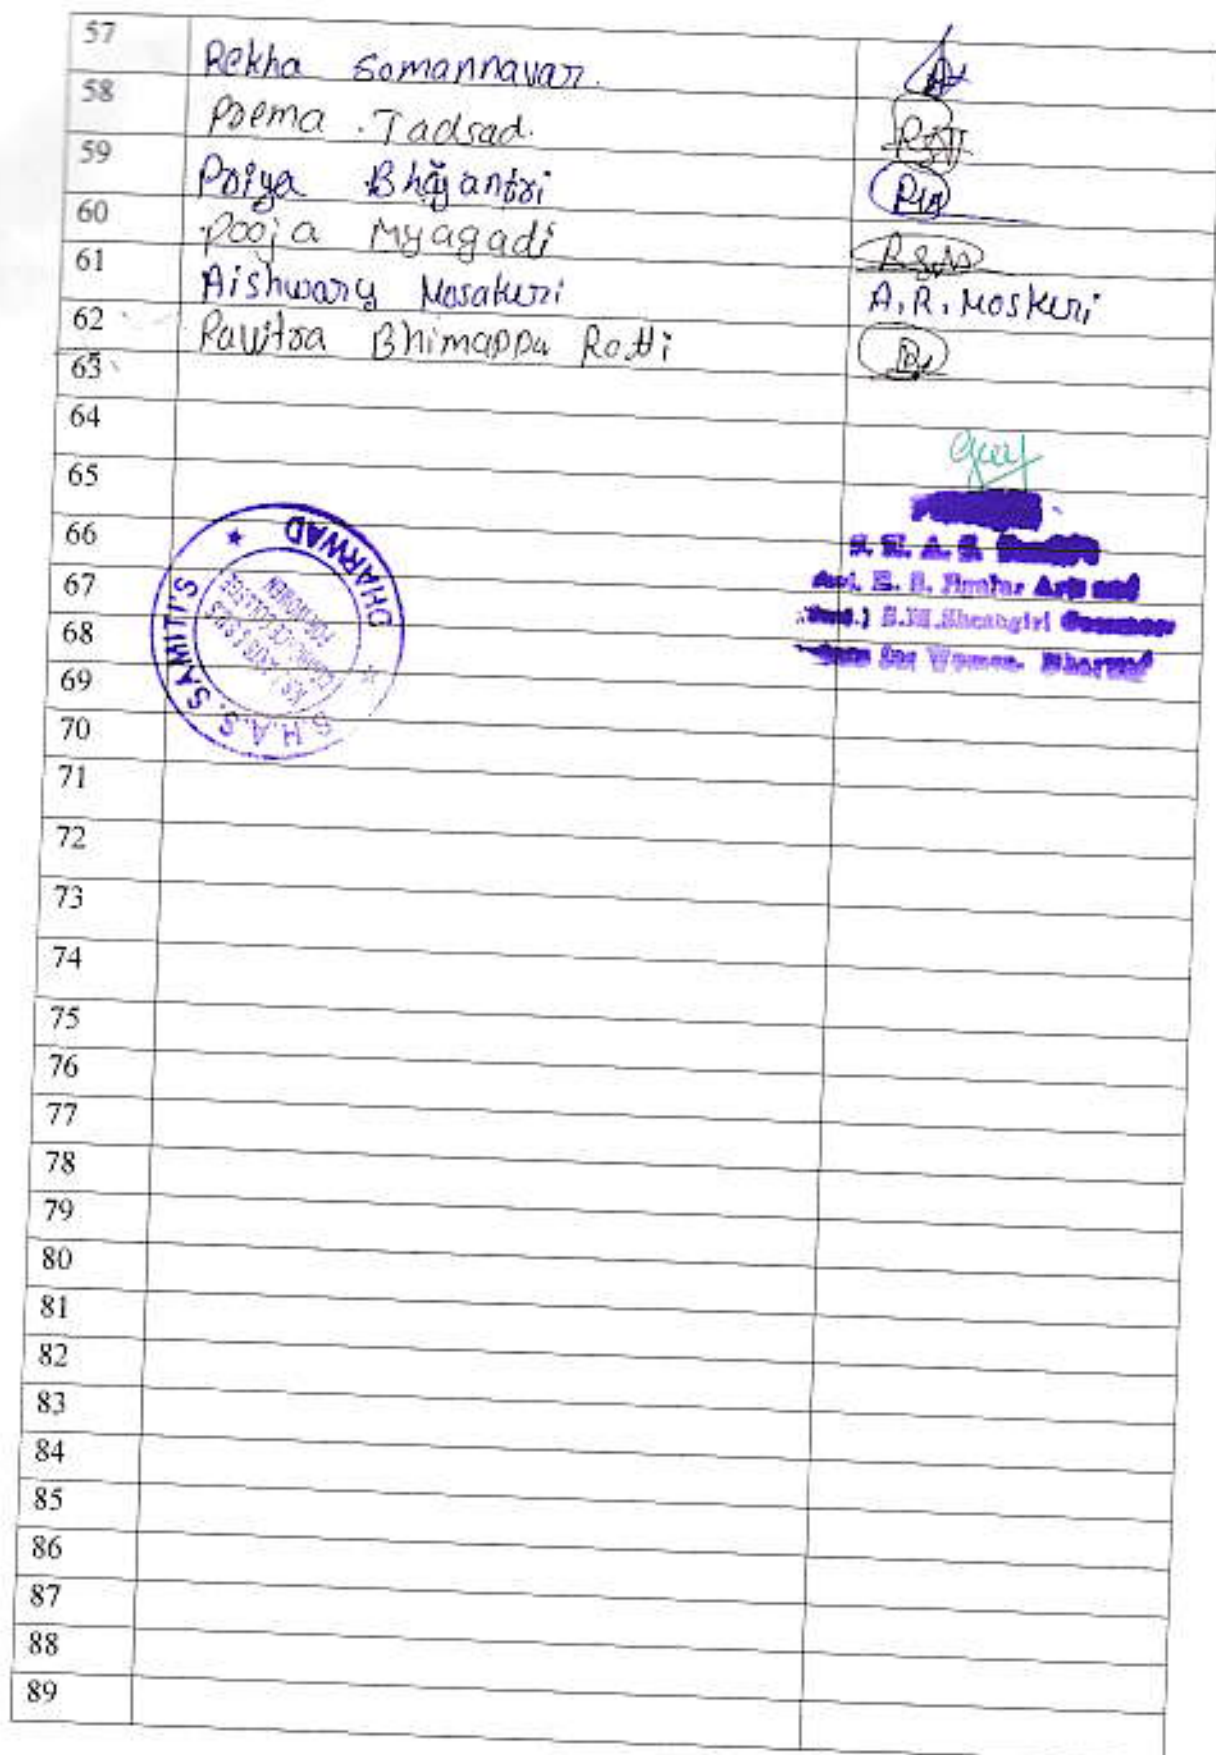 57 Rekha Somannavar.
58 Prema . Tadsad.
59 Priya Bhajantri
60 Pooja Myagadi
61 Aishwary Mosakeri A. R. Moskeri
62 Pavitra Bhimappa Rotti
63
64
65
66
67
68
69
70
71
72
73
74
75
76
77
78
79
80
81
82
83
84
85
86
87
88
89
S.H.A.S. SAMITI'S
★ DHARWAD
COLLEGE
FOR WOMEN
Arts and
S.M.Sheshgiri
for Women. Dharwad